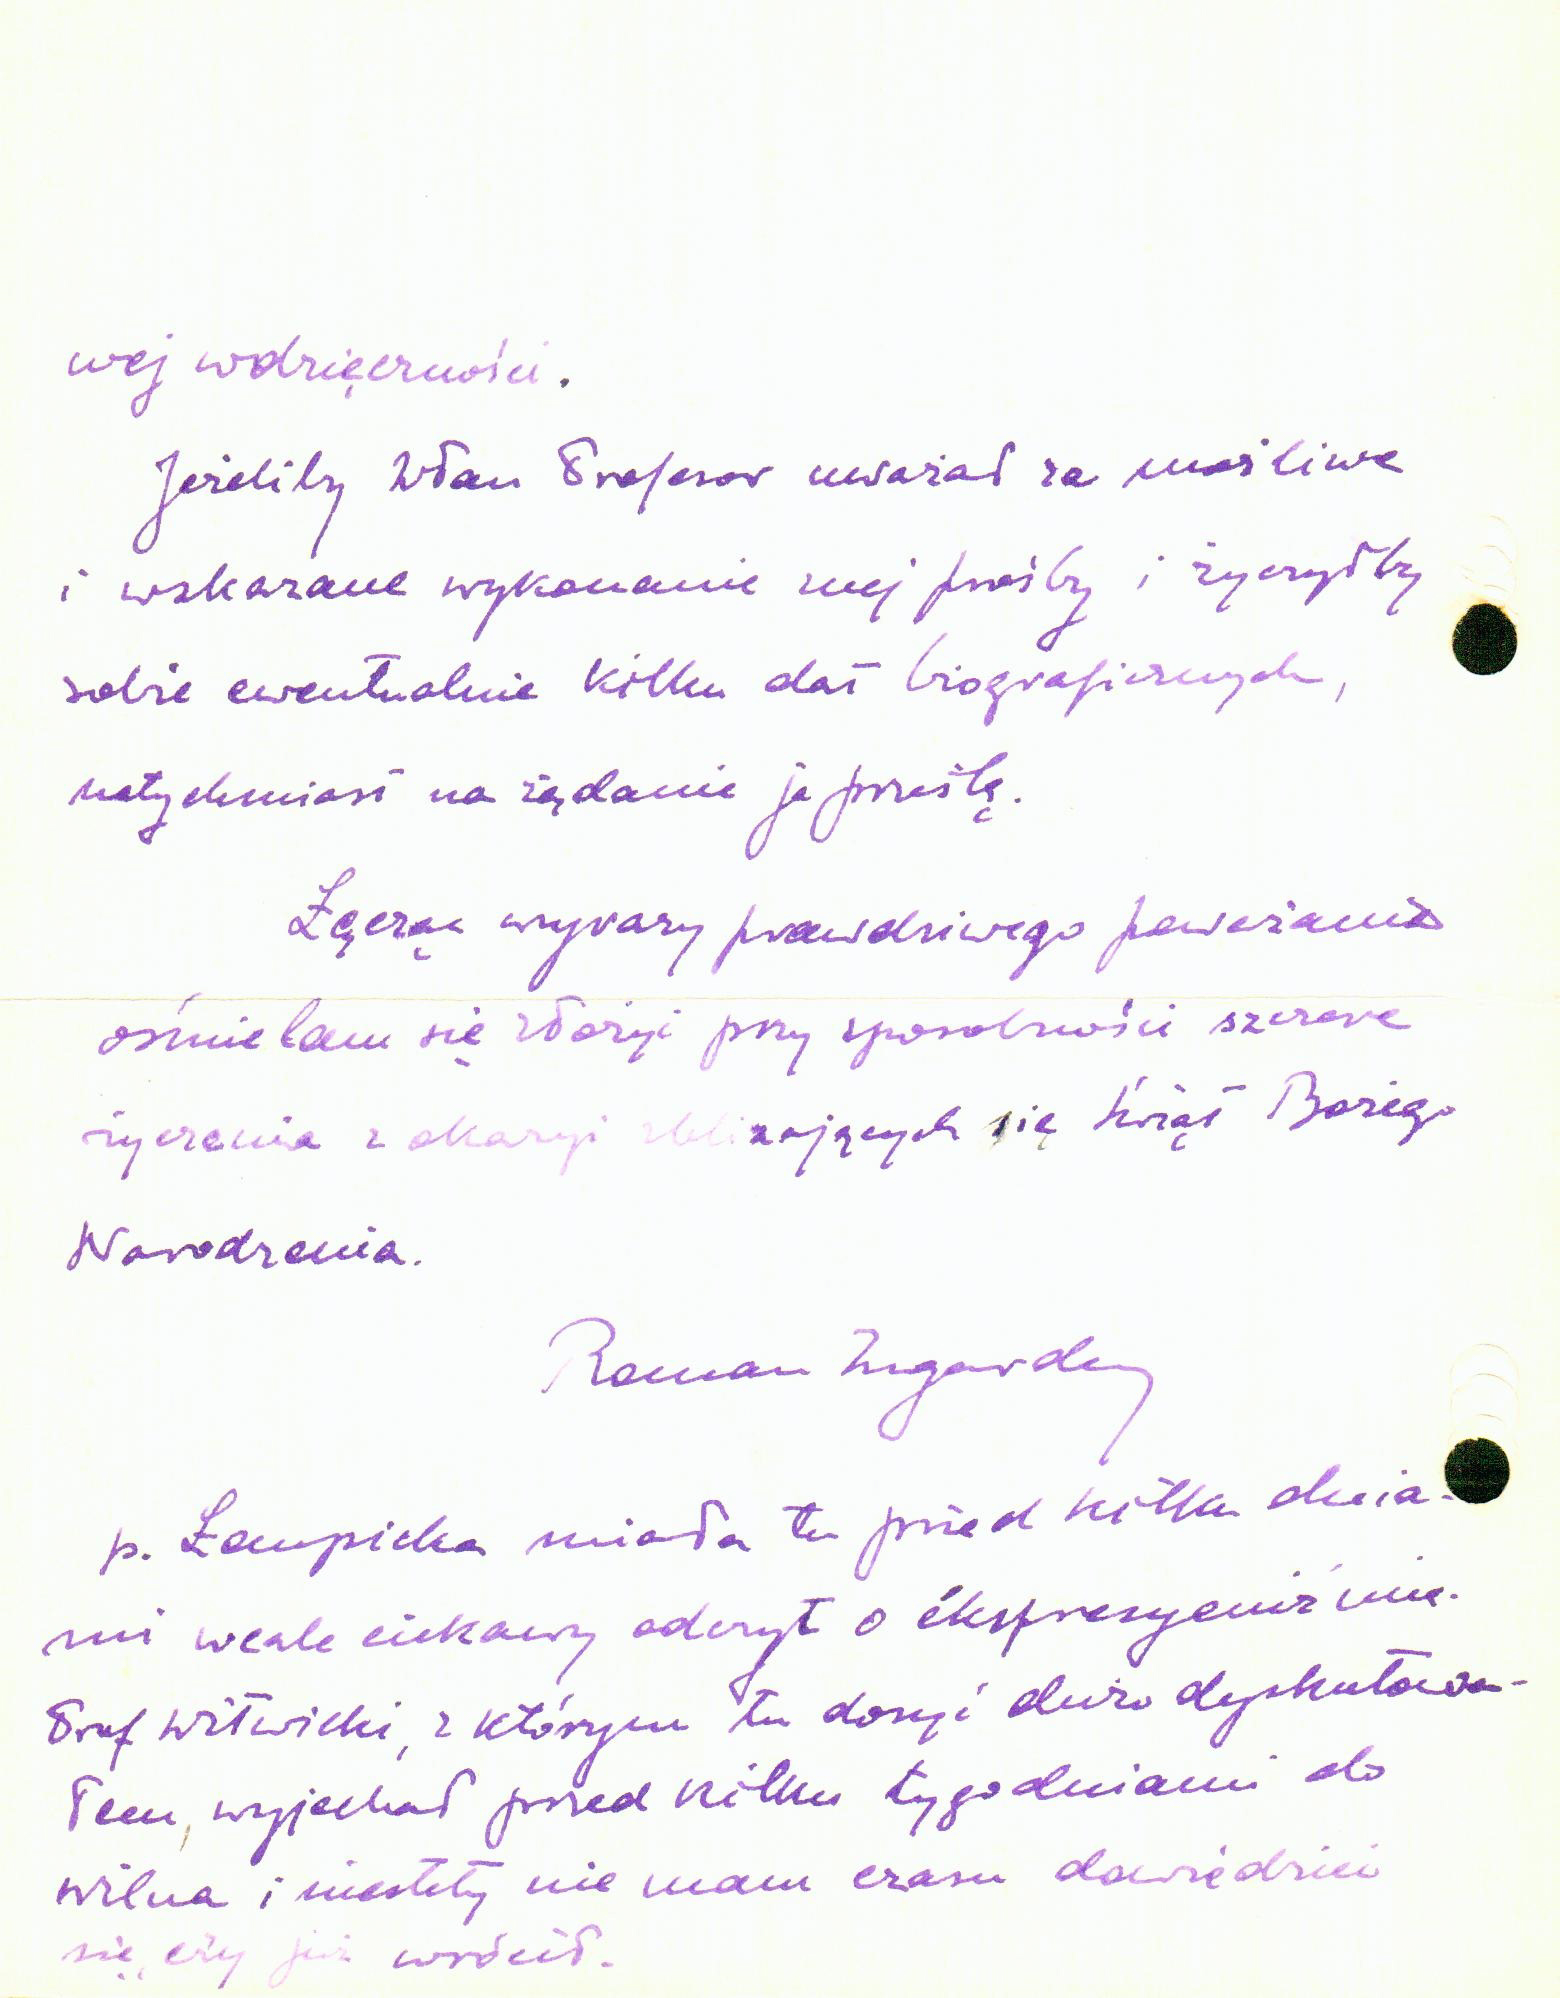 wej wdzięczności.
Jeżeliby WPan Profesor uważał za możliwe
i wskazane wykonanie mej prośby i życzyłby
sobie ewentualnie kilku dat biograficznych,
natychmiast na żądanie je prześlę.
Łącząc wyrazy prawdziwego poważania
ośmielam się złożyć przy sposobności szczere
życzenia z okazyi zbliżających się Świąt Bożego
Narodzenia.
Roman Ingarden
p. Łempicka miała tu przed kilku dnia-
mi wcale ciekawy odczyt o ekspresyoniźmie.
Prof Witwicki, z którym tu dosyć dużo dyskutowa-
łem, wyjechał przed kilku tygodniami do
Wilna i niestety nie mam czasu dowiedzieć
się, czy już wrócił.